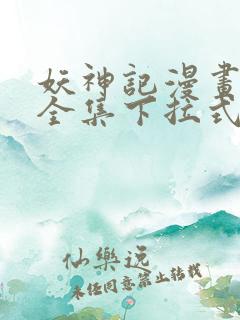 妖神記漫畫
全集下拉式
仙樂遥
未经同意禁止转载